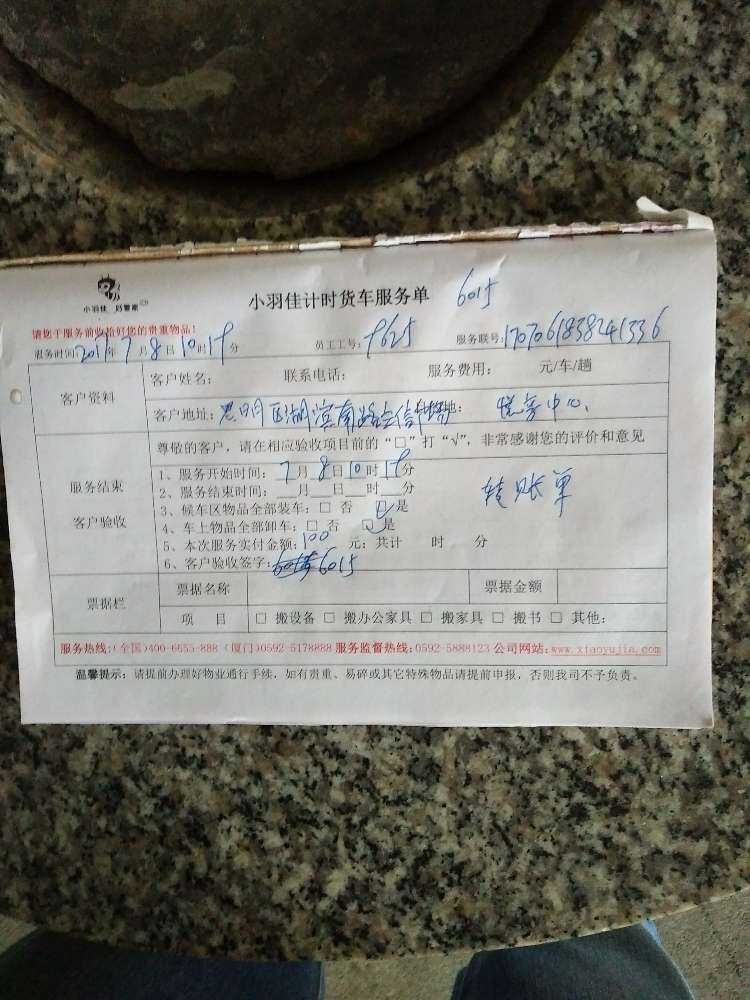 小羽佳 好管家
小羽佳计时货车服务单 6015
请您于服务前收拾好您的贵重物品!
服务时间:2017年7月8日10时19分 员工工号: 9625 服务联号:17070618383241336
客户资料
客户姓名: 联系电话: 服务费用: 元/车/趟
客户地址: 思明区湖滨南路 地: 中心
尊敬的客户,请在相应验收项目前的“□”打“√”,非常感谢您的评价和意见
服务结束
客户验收
1、服务开始时间: 7月8日10时19分
2、服务结束时间:___月___日___时___分
转账单
3、候车区物品全部装车: □ 否 ☑是
4、车上物品全部卸车: □ 否 ☑是
5、本次服务实付金额: 100 元; 共计 时 分
6、客户验收签字: 6015
票据栏
票据名称 票据金额
项 目 □ 搬设备 □ 搬办公家具 □ 搬家具 □ 搬书 □ 其他:
服务热线:(全国)400-6655-888 (厦门)0592-5178888 服务监督热线:0592-5888123 公司网站:www.xiaoyujia.com
温馨提示: 请提前办理好物业通行手续, 如有贵重、易碎或其它特殊物品请提前申报, 否则我司不予负责。